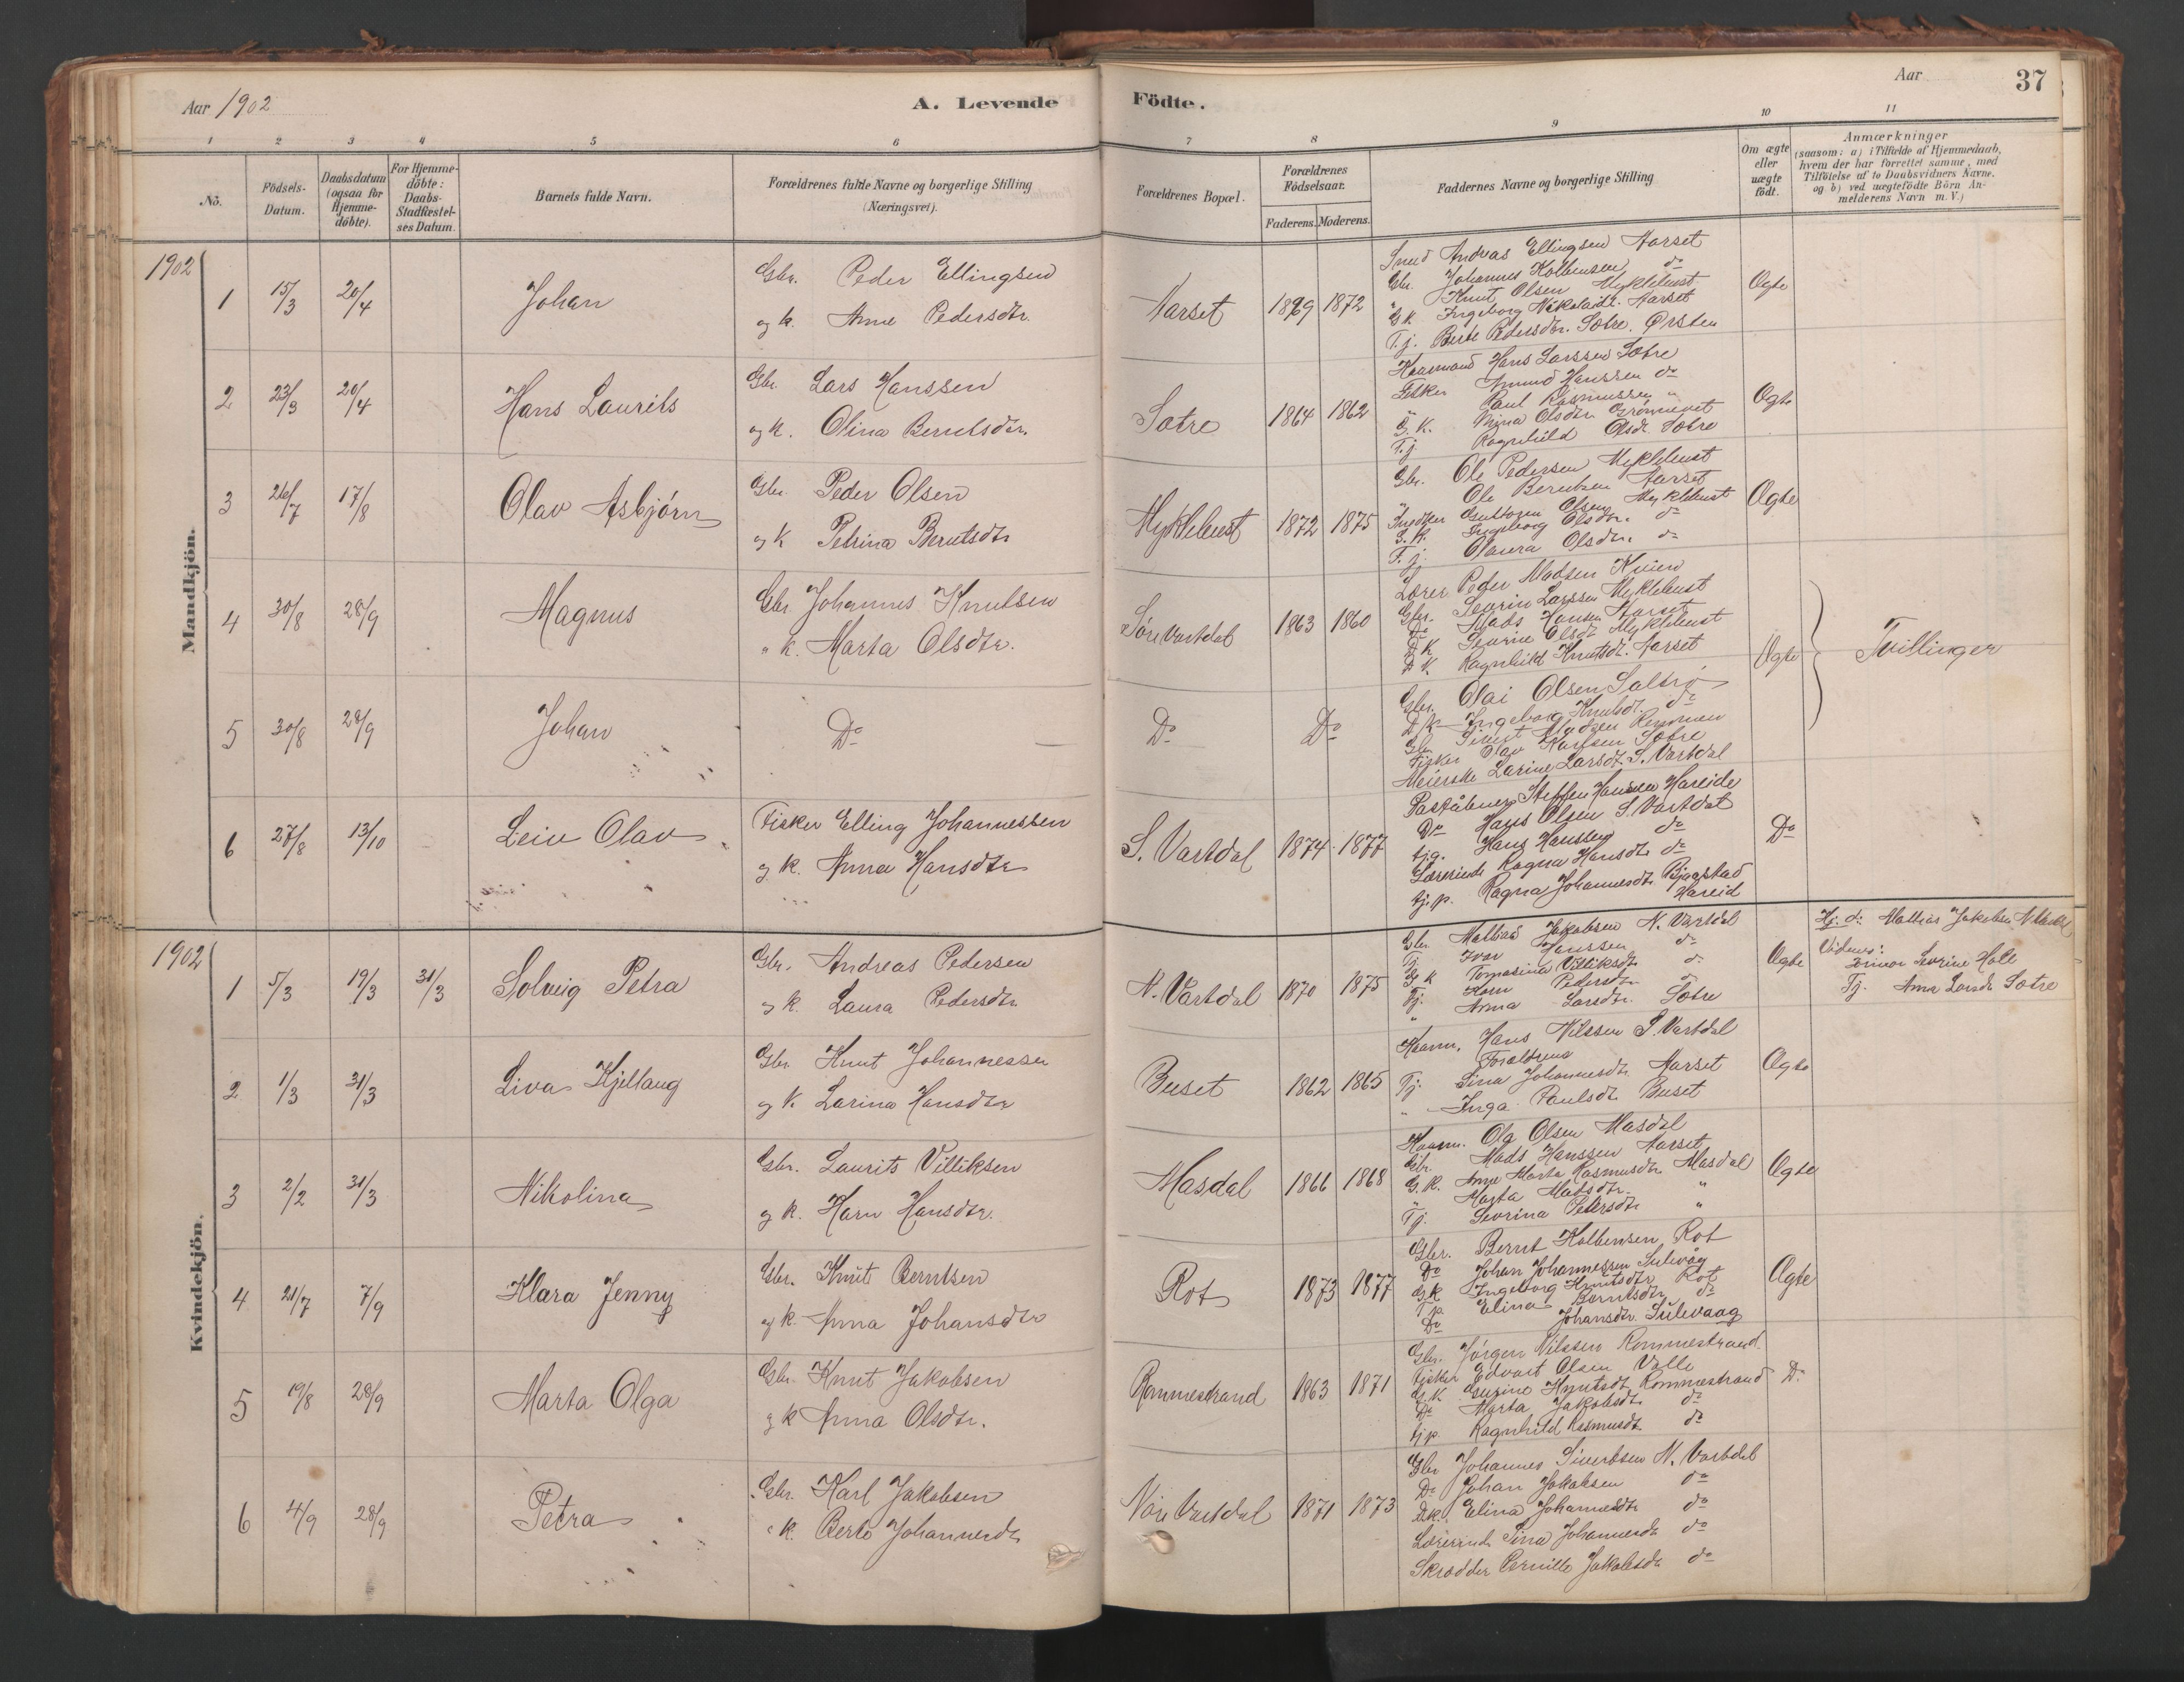 Aar 1902
A. Levende
Födte.
Aar
37
1 2 3 4 5 6 7 8 9 10 11
No.
Födsels-Datum.
Daabsdatum (ogsaa for Hjemme-döbte).
For Hjemme-döbte: Daabs-Stadfæstel-ses Datum.
Barnets fulde Navn.
Forældrenes fulde Navne og borgerlige Stilling (Næringsvei).
Forældrenes Bopæl.
Forældrenes Födselsaar.
Faderens. Moderens.
Faddernes Navne og borgerlige Stilling
Om ægte eller uægte födt.
Anmærkninger
(saasom: a) i Tilfælde af Hjemmedaab,
hvem der har forrettet samme, med
Tilföielse af to Daabsvidners Navne.
og b) ved uægtefödte Börn An-
melderens Navn m.V.)
Mandkjön.
1902
1 15/3 20/4 Johan
Gbr. Peder Ellingsen
og k. Anne Pedersdtr.
Aarset 1869 1872
Smed Andreas Ellingsen Aarset
Gbr. Johannes Kolbensen do
" Knut Olsen Myklebust
G K Ingeborg Nikolaidtr. Aarset
T.j. Berte Pedersdtr. Sætre. Ørsten
Ægte
2 23/3 20/4 Hans Laurits
Gbr. Lars Hanssen
og k. Olina Berntsdtr.
Sætre 1864 1862
Kaarmand Hans Larssen Sætre
Fisker Amund Hanssen do
" Paul Rasmussen "
G. K. Olsdtr.
T.j. Ragnhild Olsdt. Sætre
Ægte
3 26/7 17/8 Olav Asbjørn
Gbr. Peder Olsen
og K Petrina Berntsdtr
Myklebust 1872 1875
Gbr. Ole Pedersen Myklebust
" Ole Berntsen Aarset
Snedker Guttorm Olsen Myklebust
G. K. Ingeborg Olsdtr. do
T.j. Olaura Olsdtr. do
Ægte
4 30/8 28/9 Magnus
Gbr Johannes Knutsen
" k. Marta Olsdtr.
Søre Vartdal 1863 1860
Lærer Peder Madsen Kvien
Gbr. Sevrin Larssen Myklebust
Do Mads Hansen Aarset
G K Sevrine Olsdt Myklebust
G K. Ragnhild Knutsdt. Aarset
Ægte
Tvillinger
5 30/8 28/9 Johan
Do
Do Do
Gbr. Olai Olsen Saltrø
G K Ingeborg Knutsdt. do
Gbr Sivert Madsen
Fisker Olav Karlsen Sætre
Meierske Larine Larsdt. S. Vartdal
6 27/8 13/10 Leiv Olav
Fisker Elling Johannessen
og k. Anna Hansdtr
S. Vartdal 1874 1877
Postaabner Steffen Hanssen Hareide
Do Hans Olsen S. Vartdal
tjg. Hans Hanssen do
Lærerinde Ragna Hansdt. do
tj.p. Ragna Johannesdt. Bjaastad
Hareid
Do
Kvindekjön.
1902
1 5/3 19/3 31/3 Solveig Petra
Gbr. Andreas Pedersen
og k. Laura Pedersdtr.
N. Vartdal 1870 1875
Gbr. Mathias Jakobsen N. Vartdal
Tj. Ivar Hanssen do
G K Tomasina Villiksdt. do
Tj. Karn Pedersdtr
" Anna Larsdtr. Sætre
Ægte
Hj. d: Mathias Jakobsen N. Vartdal
Vidner:
Jormor Sevrine Holt
Tj. Anna Larsdt Sætre
2 1/3 31/3 Liva Kjellaug
Gbr Knut Johannessen
og K. Larina Hansdtr
Buset 1862 1865
Kaarm. Hans Nilssen S. Vartdal
Forældrene
Tj. Sina Johannesdtr. Aarset
" Inga Paulsdt. Buset
Ægte
3 2/2 31/3 Nikolina
Gbr. Laurits Villiksen
og k. Karn Hansdtr.
Masdal 1866 1868
Kaarm. Ola Olsen Masdal
Gbr. Mads Hanssen Aarset
G. K. Ane Marta Rasmusdtr. Masdal
" Marta Madsdtr. "
Tj. Sevrina Petersdt. "
Ægte
4 21/7 7/9 Klara Jenny
Gbr. Knut Berntsen
og k. Anna Johansdtr
Rot 1873 1877
Gbr. Bernt Kolbensen Rot
Do Johan Johannessen Sulevåg
G K Ingeborg Knutsdtr Rot
T p. Elina Berntsdtr do
Do Johansdtr. Sulevaag
Ægte
5 19/8 28/9 Marta Olga
Gbr. Knut Jakobsen
og k Anna Olsdtr.
Rommestrand 1863 1871
Gbr. Jørgen Nilssen Rommestrand
Fisker Edvart Olsen Valle
G. K Gurine Knutsdt Rommestrand
Do Marta Jakobsdt do
tjp. Ragnhild Rasmusdt. do
Do
6 4/9 28/9 Petra
Gbr. Karl Jakobsen
" k. Berte Johannesdt.
Nøre Vartdal 1871 1873
Gbr Johannes Sivertsen N. Vartdal
Do Johan Jakobsen do
Gk. Elina Johannesdt do
Lærerinde Sina Johannesdt do
Skrædder Pernille Jakobsdt do